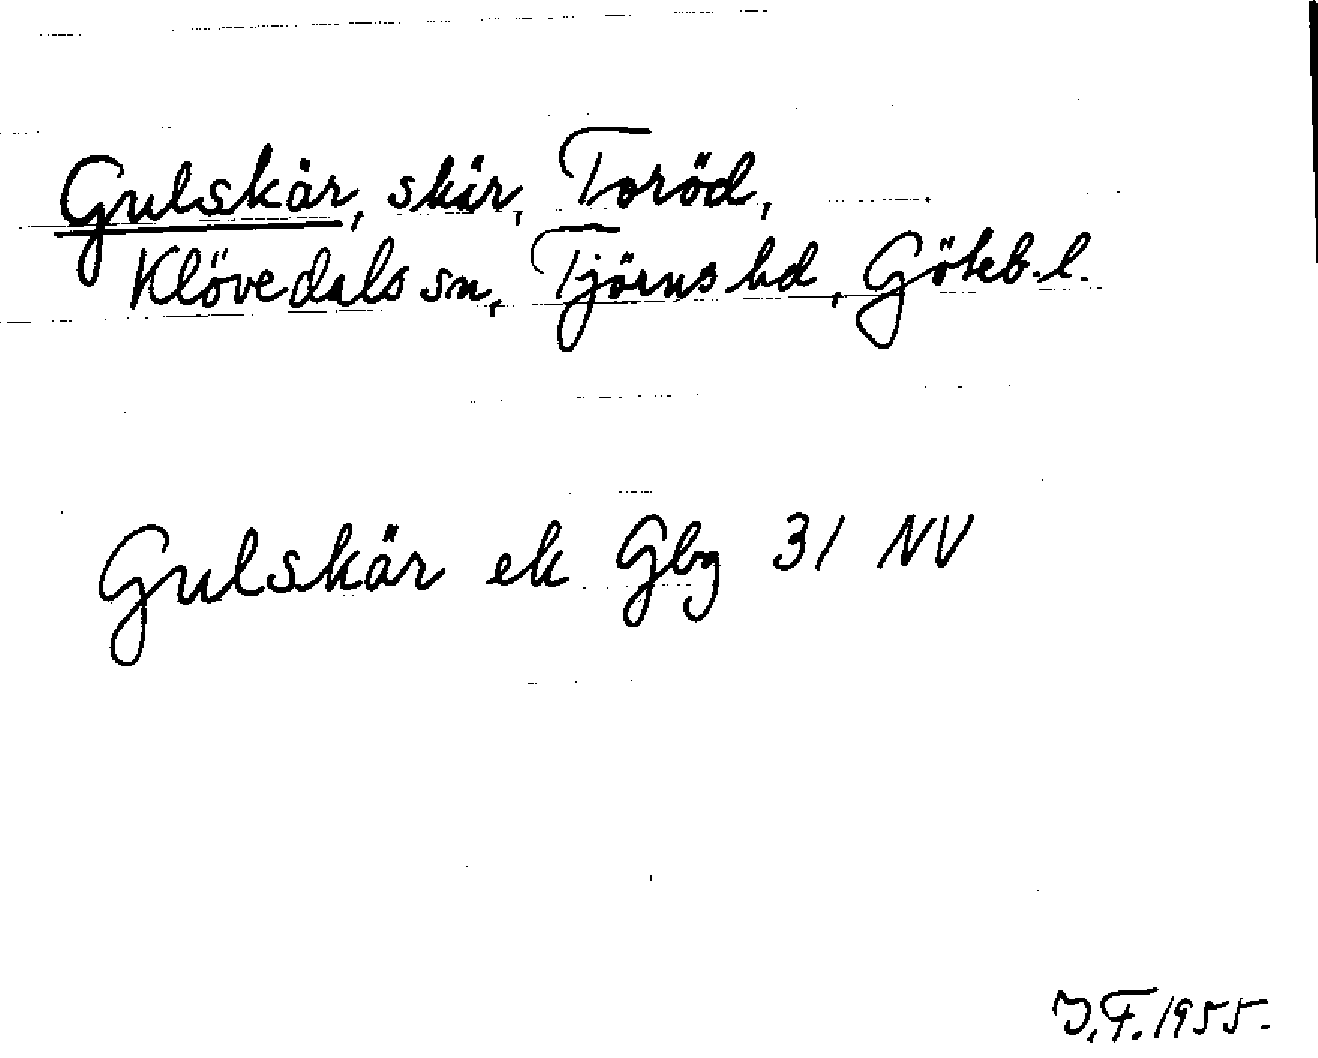 Gulskär, skär, Toröd,
Klövedals sn, Tjörns hd, Göteb. l.
Gulskär ek Gbg 31 NV
J.F. 1955.